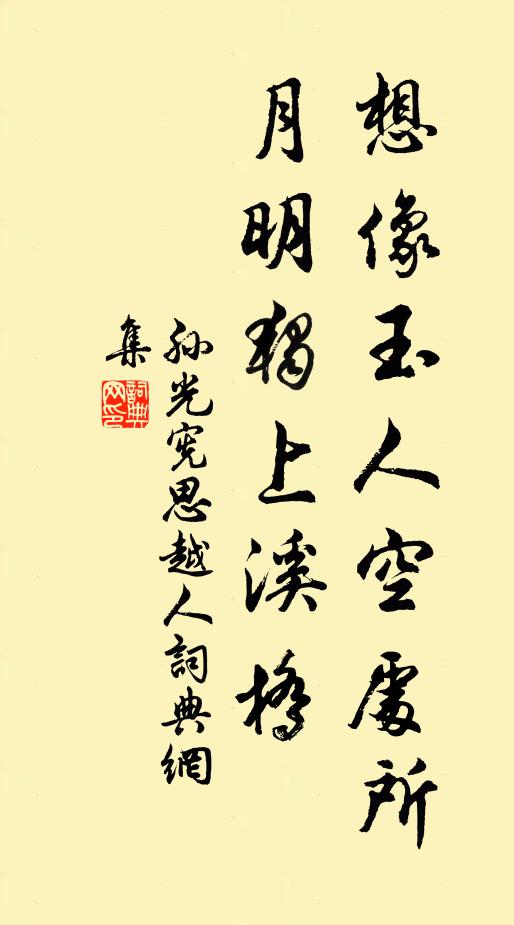 想像玉人空處所
月明獨上溪橋
孫光憲思越人詞典網
集
詞典
网印